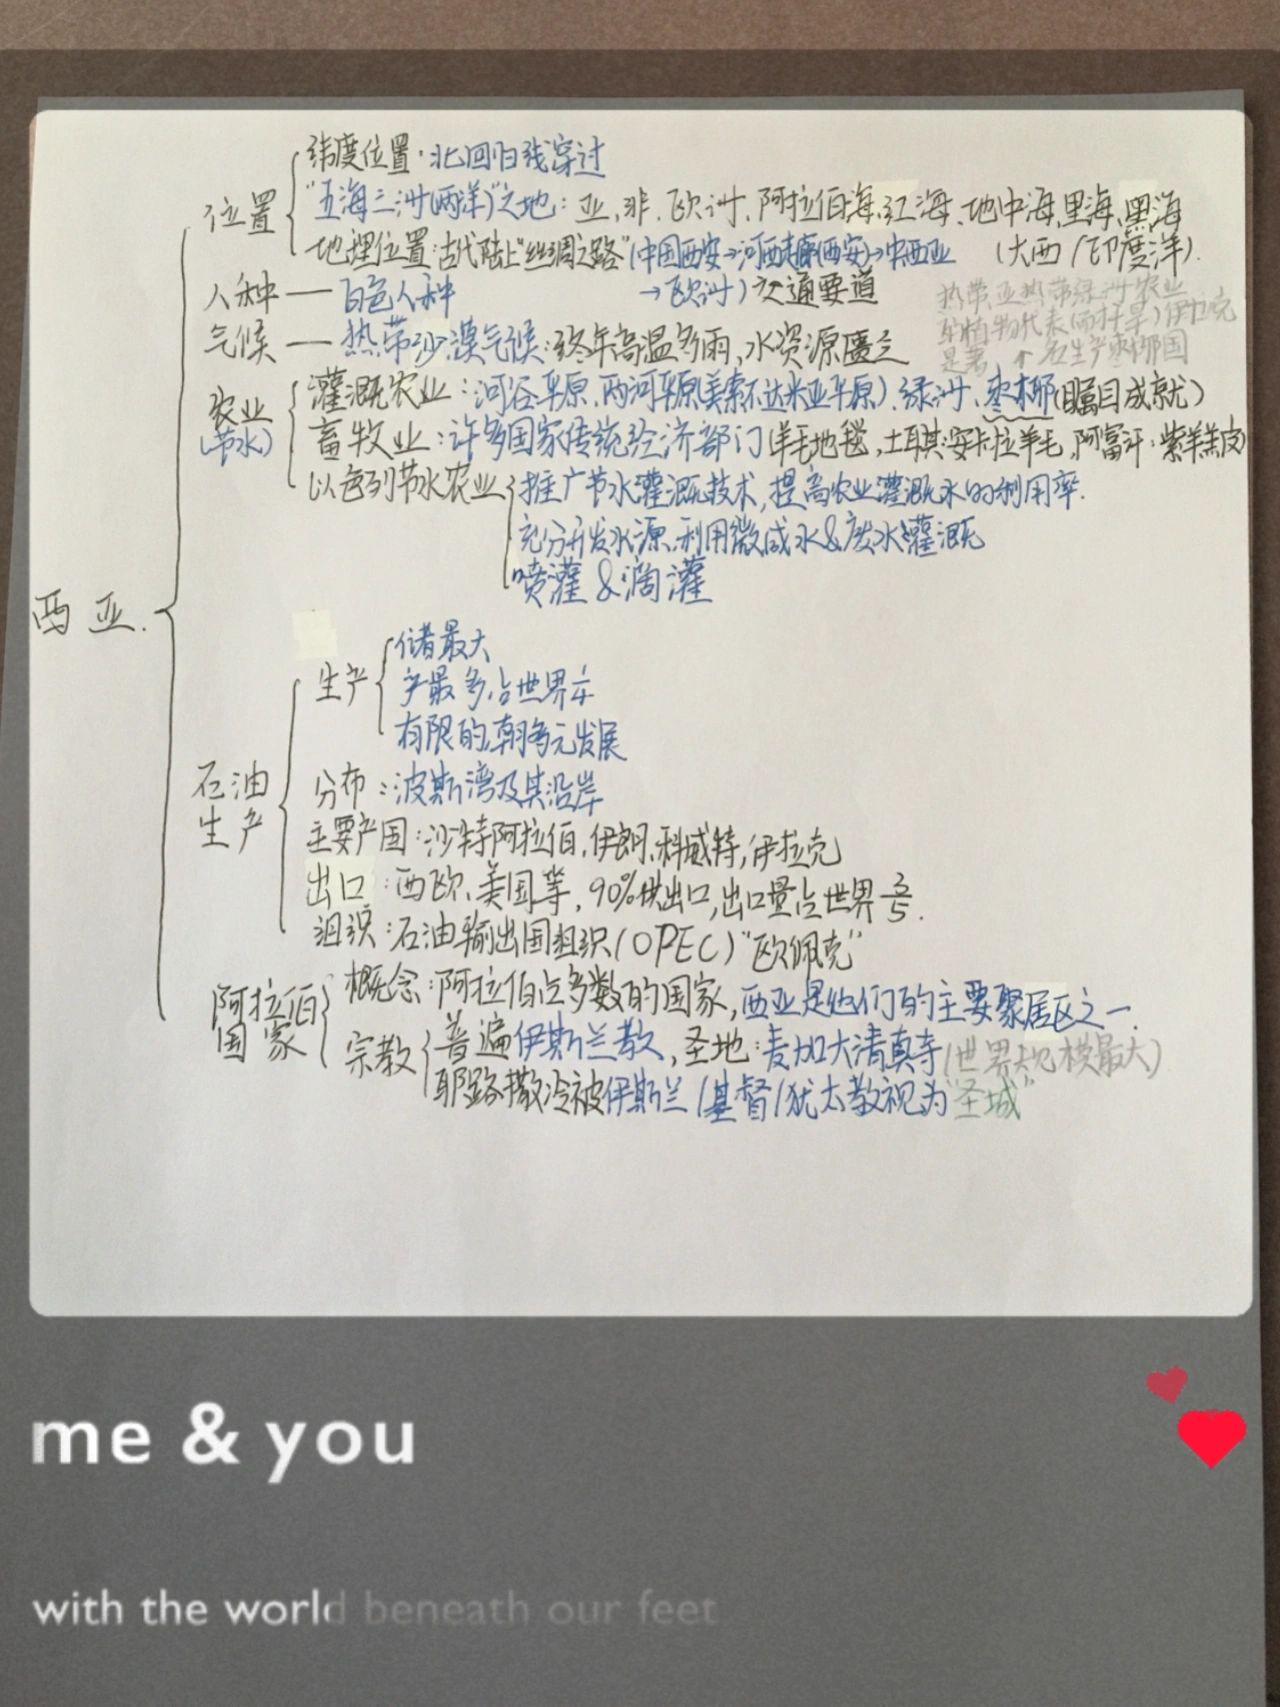 西亚.
位置
纬度位置·北回归线穿过
"五海三洲(两洋)"之地：亚、非、欧洲、阿拉伯海、红海、地中海、里海、黑海
(大西/印度洋).
地理位置:古代陆上"丝绸之路"(中国西安→河西走廊(西安)→中西亚
→欧洲)交通要道
人种——白色人种
气候—热带沙漠气候:终年高温多雨、水资源匮乏
热带、亚热带绿洲农业
(耐干旱)伊拉克
是著名生产枣椰国
农业
(节水)
灌溉农业：河谷平原、两河平原(美索不达米亚平原)、绿洲、枣椰(瞩目成就)
畜牧业：许多国家传统经济部门(羊毛地毯,土耳其:安卡拉羊毛,阿富汗:紫羊羔皮)
以色列节水农业
推广节水灌溉技术,提高农业灌溉水的利用率.
充分开发水源,利用微咸水&废水灌溉
喷灌&滴灌
石油
生产
生产
储最大
产最多,占世界1/4
有限的,朝多元发展
分布：波斯湾及其沿岸
主要产国:沙特阿拉伯,伊朗,科威特,伊拉克
出口：西欧、美国等,90%供出口,出口量占世界3/5.
组织:石油输出国组织(OPEC)"欧佩克"
阿拉伯
国家
概念:阿拉伯占多数的国家,西亚是他们的主要聚居区之一.
宗教
普遍伊斯兰教,圣地:麦加大清真寺(世界规模最大)
耶路撒冷被伊斯兰/基督/犹太教视为"圣城"
me & you
with the world beneath our feet